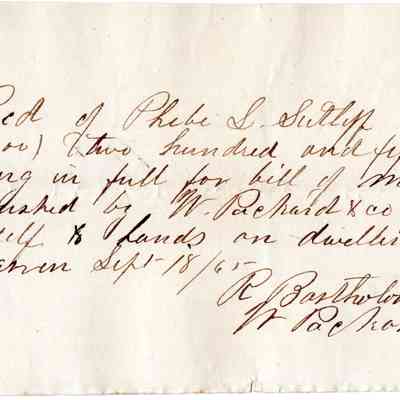 Recd of Phebe L. Sutliff
00) (two hundred and fif
ng in full for bill of m
ished by W. Packard & co
elf & hands on dwellin
rren Sept 18/65
R Bartholo
W Packar